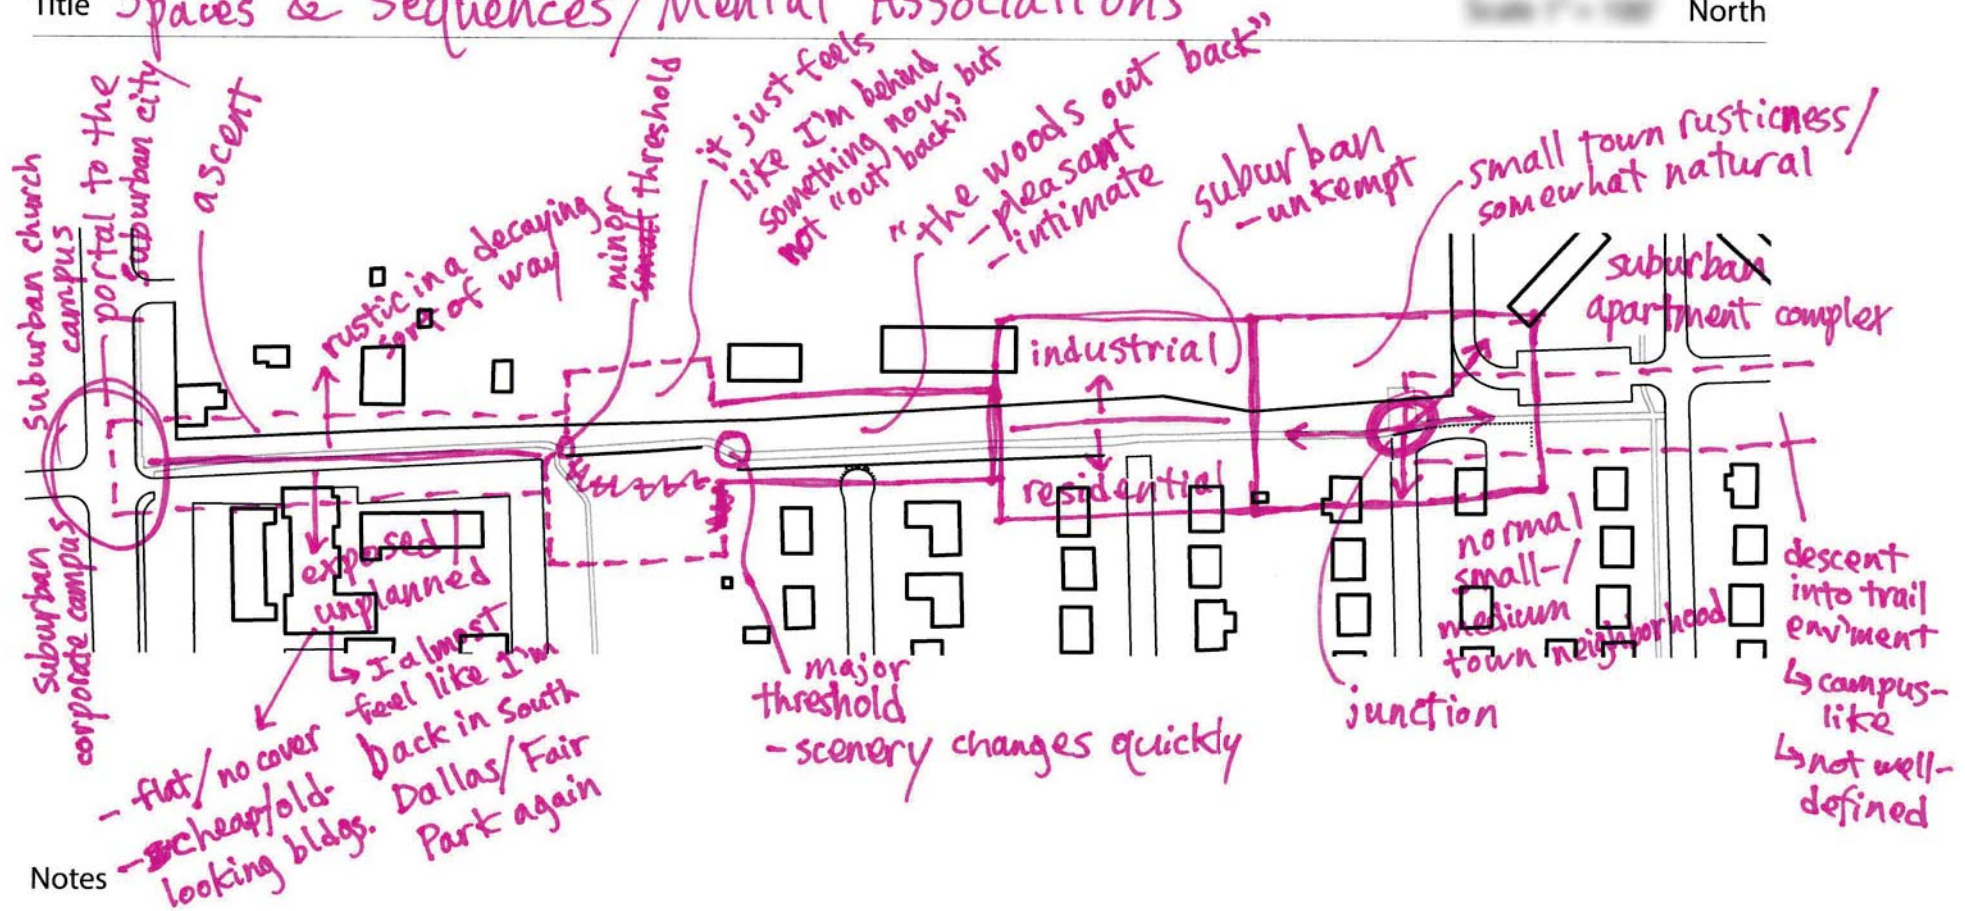 Title Spaces & Sequences/Mental Associations
North
suburban church
campus
portal to the
suburban city
ascent
rustic in a decaying
sort of way
minor
small threshold
it just feels
like I'm behind
something now, but
not "out back"
"the woods out back"
- pleasant
- intimate
suburban
- unkempt
small town rusticness/
somewhat natural
suburban
apartment complex
industrial
residential
suburban
corporate campus
exposed/
unplanned
- flat/no cover
- cheap/old-
looking bldgs.
↳ I almost
feel like I'm
back in South
Dallas/Fair
Park again
major
threshold
- scenery changes quickly
junction
normal
small-/
medium
town neighborhood
descent
into trail
env'ment
↳ campus-
like
↳ not well-
defined
Notes